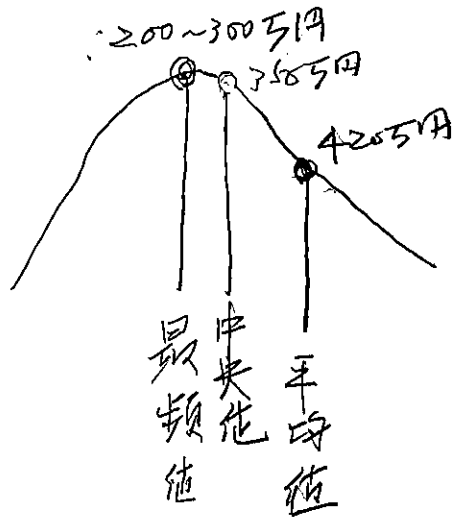 :200~300万円
350万円
420万円
最頻値
中央値
平均値